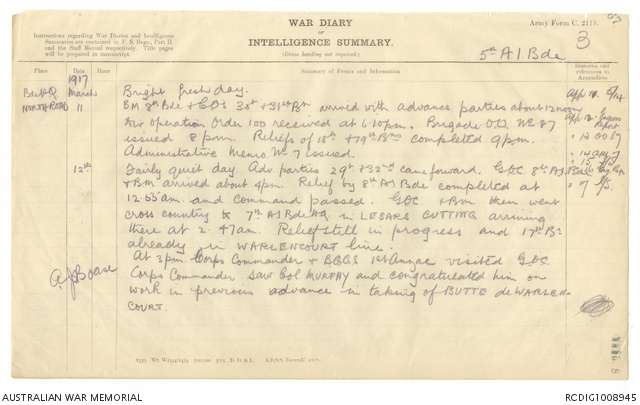 WAR DIARY
or
INTELLIGENCE SUMMARY.
(Erase heading not required.)
Army Form C. 2118.
Instructions regarding War Diaries and Intelligence
Summaries are contained in F. S. Regs., Part II.
and the Staff Manual respectively. Title pages
will be prepared in manuscript.
3
5th A I Bde
Place Date Hour Summary of Events and Information Remarks and references to Appendices
1917
March
Bright fresh day.
NORTH ROAD 11 BM 8th Bde & COs 30th & 31st Bn arrived with advance parties about 12 noon
Div Operation Order 100 received at 6.10pm. Brigade O.O. No 87
issued 8pm. Reliefs of 18th & 19th Bns completed 9pm.
Administrative Memo No 7 issued.
12th Fairly quiet day. Adv parties 29th & 32nd came forward. GOC 8th A I Bde
& BM arrived about 9pm. Relief by 8th A I Bde completed at
12.55am and command passed. GOC & BM then went
cross country to 7th A I Bde HQ in LE SARS CUTTING arriving
there at 2.47am. Relief still in progress and 17th Bn
already in WARLENCOURT line.
At 3pm Corps Commander & BGGS 1st Anzac visited GOC
Corps Commander saw Col MURPHY and congratulated him on
work in previous advance in taking of BUTTE de WARLEN-
COURT.
AUSTRALIAN WAR MEMORIAL
RCDIG1008945